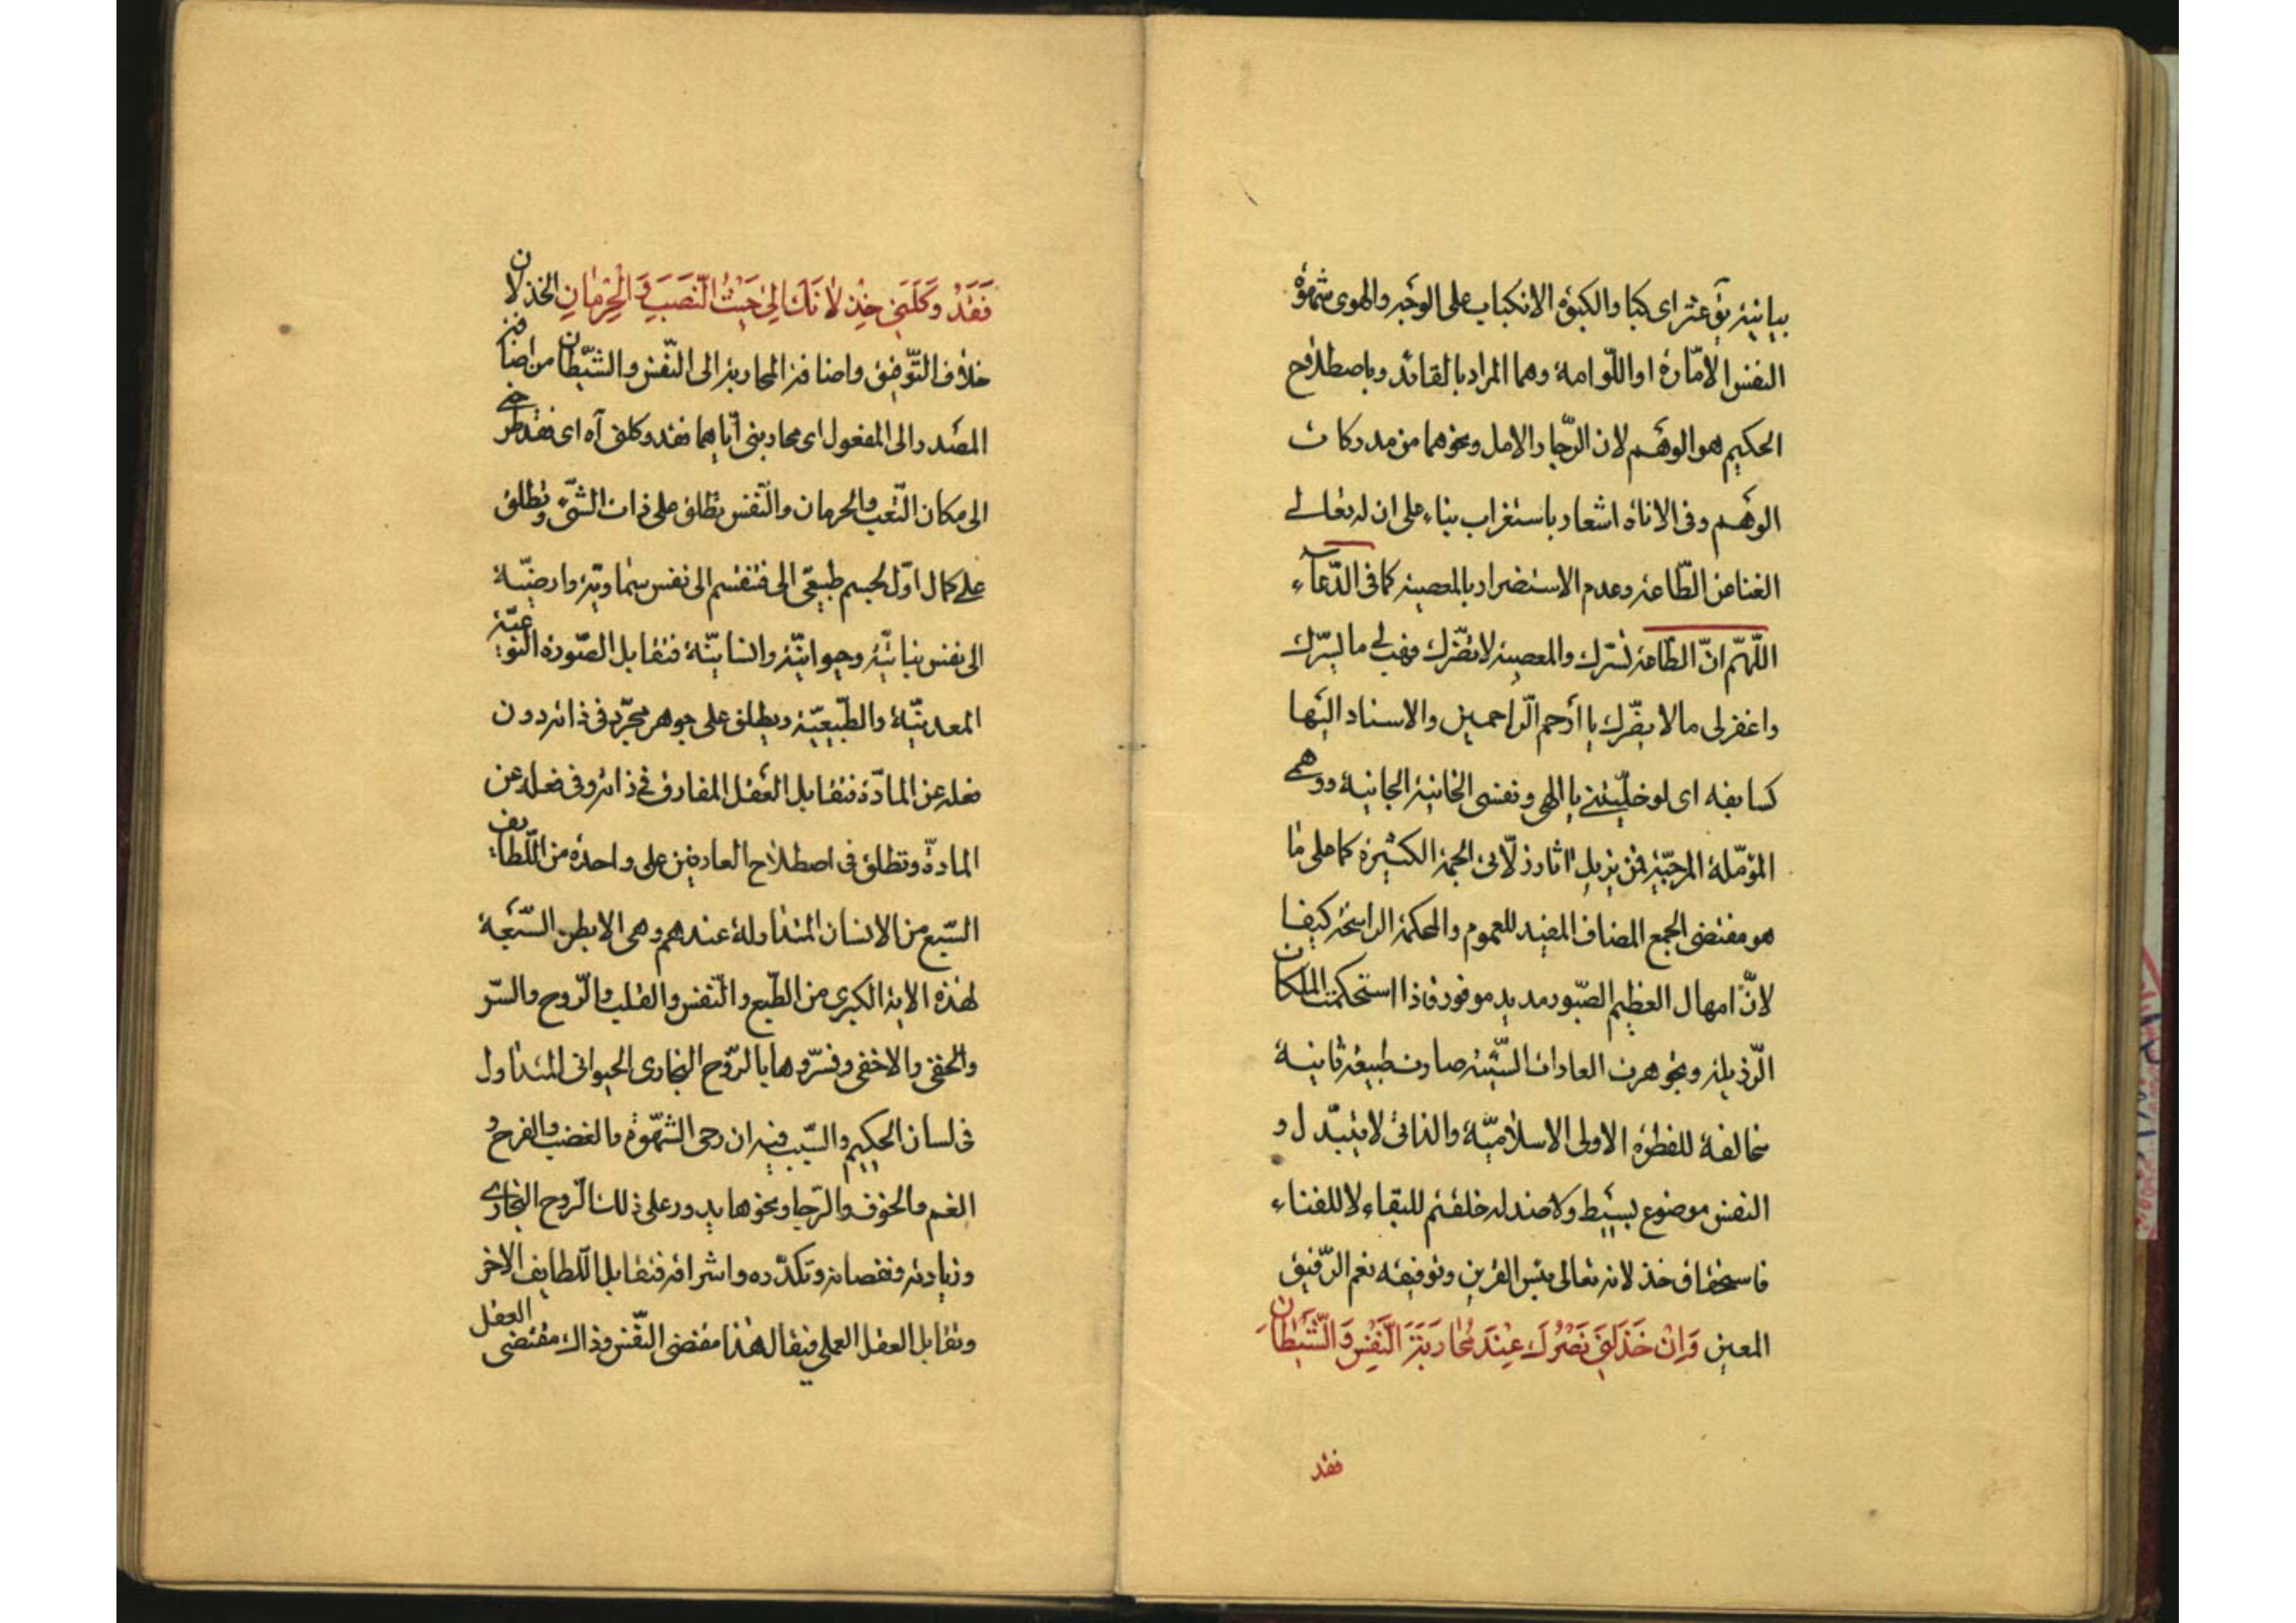 بيانية ق عثر اى كبا والكبوة الانكباب على الوجه والهوى شهوة
النفس الامّارة او اللّوامة وهما المراد بالقائد وباصطلاح
الحكيم هو الوهم لان الرّجا والامل ونحوهما من مدركات
الوهم وفى الاناة اشعار باستغراب بناء على ان له تعالى
الغنا عن الطّاعة وعدم الاستضرار بالمعصية كما فى الدّعاء
اللّهمّ انّ الطّاعة تسّرك والمعصية لا تضّرك فهب لى ما يسّرك
واغفر لى ما لا يضّرك يا أرحم الرّاحمين والاسناد اليها
كسابقه اى لو خلّيتنى يا الهى ونفسى الخائنة الجانية ووهمى
المؤمّلة المرجّية فمن يزيل اثار زلّاتى الجمة الكثيرة كما على ما
هو مقتضى الجمع المضاف المفيد للعموم والمحكمة الراسخة كيفا
لانّ امهال العظيم الصّبور مديد موفور فاذا استحكمت الملكات
الرّذيلة وتجوهرت العادات السّيّئة صارت طبيعة ثانية
مخالفة للفطرة الاولى الاسلاميّة والذاتى لا يتبدّل و
النفس موضوع بسيط ولا ضد له خلقتم للبقاء لا للفناء
فاستحقاق خذلانه تعالى بئس القرين وتوفيقه نعم الرّفيق
المعين وَاِنْ خَذَلَنِى نَصْرُكَ عِنْدَ مُحَارَبَةِ النَّفْسِ وَالشَّيْطَانِ
فقد
فَقَدْ وَكَلَنِى خِذْلَانُكَ اِلىٰ حَيْثُ النَّصَبِ وَالْحِرْمَانِ الخذلان
خلاف التّوفيق واضافة المحاربة الى النّفس والشّيطان من اضافة
المصدر الى المفعول اى محاربتى اياهما فقد وكلنى آه اى فقد طرحنى
الى مكان التّعب والحرمان والنّفس تطلق على ذات الشّىء وتطلق
على كمال اوّل لجسم طبيعّى الى فتنقسم الى نفس سماويّة وارضيّة
الى نفس نباتيّة وحيوانيّة وانسانيّة فتقابل الصّورة النّوعيّة
المعدنيّة والطّبيعيّة ويطلق على جوهر مجرّد فى ذاته دون
فعله عن المادّة فتقابل العقل المفارق فى ذاته وفى فعله عن
المادّة وتطلق فى اصطلاح العارفين على واحدة من اللّطايف
السّبع من الانسان المتداولة عندهم وهى الابطن السّبعة
لهذه الاية الكبرى من الطّبع والنّفس والقلب والرّوح والسّر
والخفى والاخفى وفسرّوها بالرّوح البخارى الحيوانى المتداول
فى لسان الحكيم والسّبب فيه ان رحى الشّهوة والغضب والفرح و
الغم والخوف والرّجا ونحوها يدور على ذلك الرّوح البخارى
وزيادته ونقصانه وتكدّره واشراقه فتقابل اللّطايف الاخر
وتقابل العقل العملى فيقال هذا مقتضى النّفس وذاك مقتضى العقل